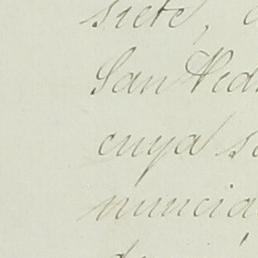 siete,
San Ped
cuya s
nuncia
de